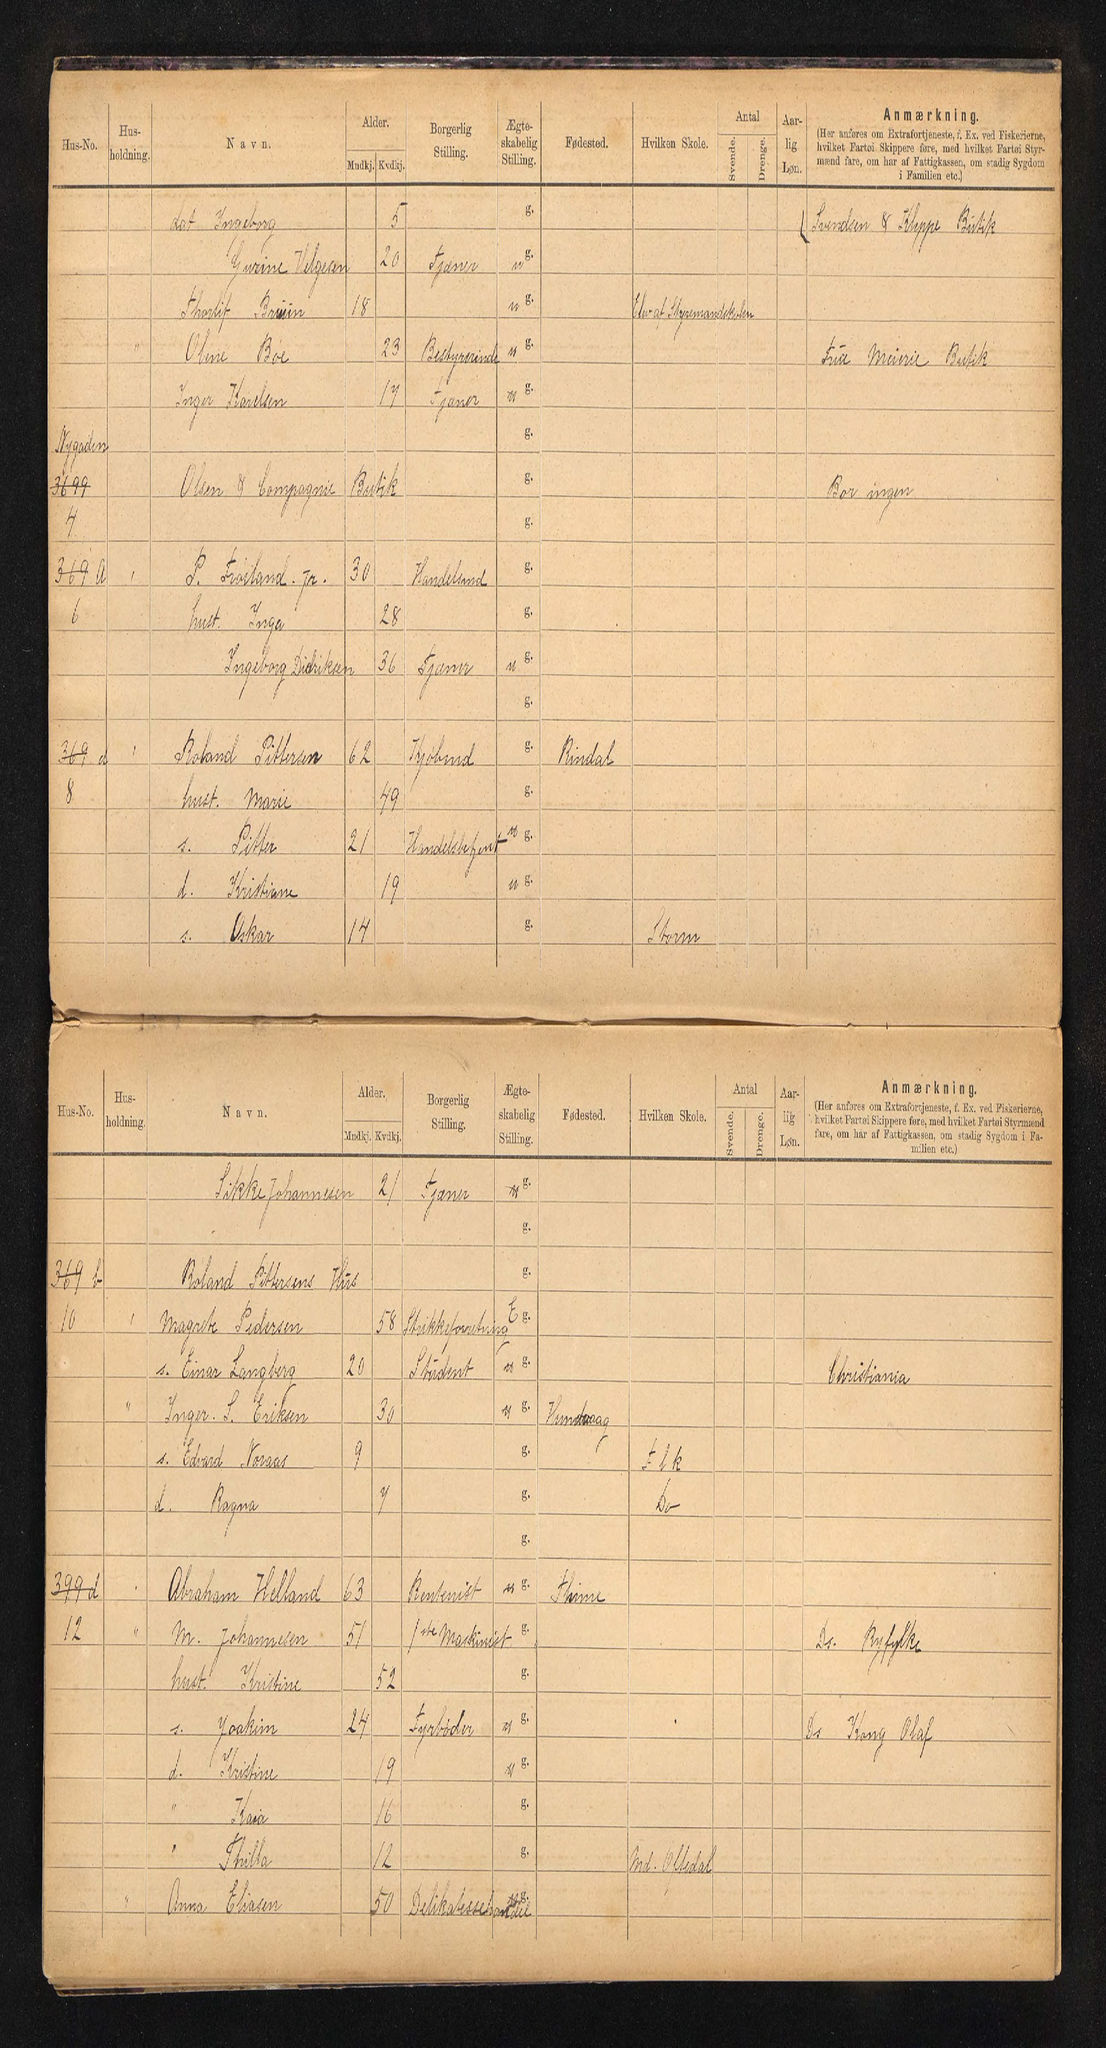 Hus-No. Hus-holdning. Navn. Alder. Mndkj. Kvdkj. Borgerlig Stilling. Ægte-skabelig Stilling. Fødested. Hvilken Skole. Antal Svende. Drenge. Aar-lig Løn. Anmærkning.
(Her anføres om Extrafortjeneste, f. Ex. ved Fiskerierne,
hvilket Partøi Skippere føre, med hvilket Partøi Styr-
mænd fare, om har af Fattigkassen, om stadig Sygdom
i Familien etc.)
dat Ingeborg 5 g. Svendsen & Kleppe Butik
Gurine Helgesen 20 Tjæner u g.
Thorlif Bruun 18 u g. Elev af Styremandskolen
" Oline Bøe 23 Bestyrerinde u g. Meierie Butik
Inger Karelsen 17 Tjæner u g.
Nygaden g.
3699 Olsen & Compagnie Butik g. Bor ingen
4 g.
369 a P. Frøiland. jr. 30 Handelsmd g.
6 hust. Inga 28 g.
Ingeborg Didriksen 36 Tjæner u g.
g.
369 d Roland Pittersen 62 Kjøbmd g. Rindal
8 hust. Marie 49 g.
s. Pitter 21 Handelsbetjent u g.
d. Kristiane 19 u g.
s. Oskar 14 g. Storm
Hus-No. Hus-holdning. Navn. Alder. Mndkj. Kvdkj. Borgerlig Stilling. Ægte-skabelig Stilling. Fødested. Hvilken Skole. Antal Svende. Drenge. Aar-lig Løn. Anmærkning.
(Her anføres om Extrafortjeneste, f. Ex. ved Fiskerierne,
hvilket Partøi Skippere føre, med hvilket Partøi Styrmænd
fare, om har af Fattigkassen, om stadig Sygdom i Fa-
milien etc.)
Sikke Johannesen 21 Tjæner u g.
g.
369 b Roland Pittersens Hus g.
10 Magrete Pedersen 58 Strikkeforretning E g.
s. Einar Langberg 20 Student u g. Christiania
" Inger. S. Eriksen 30 u g. Hundvaag
s. Edvard Noraas 9 g. F l k
d. Ragna 7 g. Do
g.
399 d Abraham Helland 63 Rentenist u g. Thime
12 " M. Johannesen 51 1ste Maskinist g. Ds. Ryfylke
hust. Kristine 52 g.
s. Joakim 24 Fyrbøder u g. Ds Kong Olaf
d. Kristine 19 u g.
" Kaia 16 g.
" Thilla 12 g. Md. Oltedal
" Anna Eliasen 50 Delikatessehandel u g.